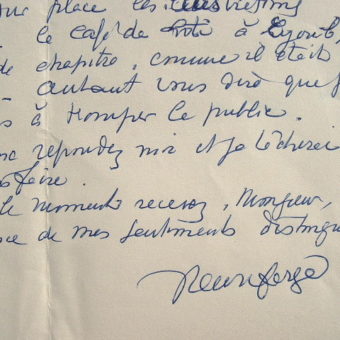 sur place les illustrations
le café de à Eyoub,
de chapitre, comme il était
autant vous dire que j
s à tromper le public.
nc répondez moi et je tâcherai
faire.
le moment recevez, Monsieur,
ce de mes sentiments distingu